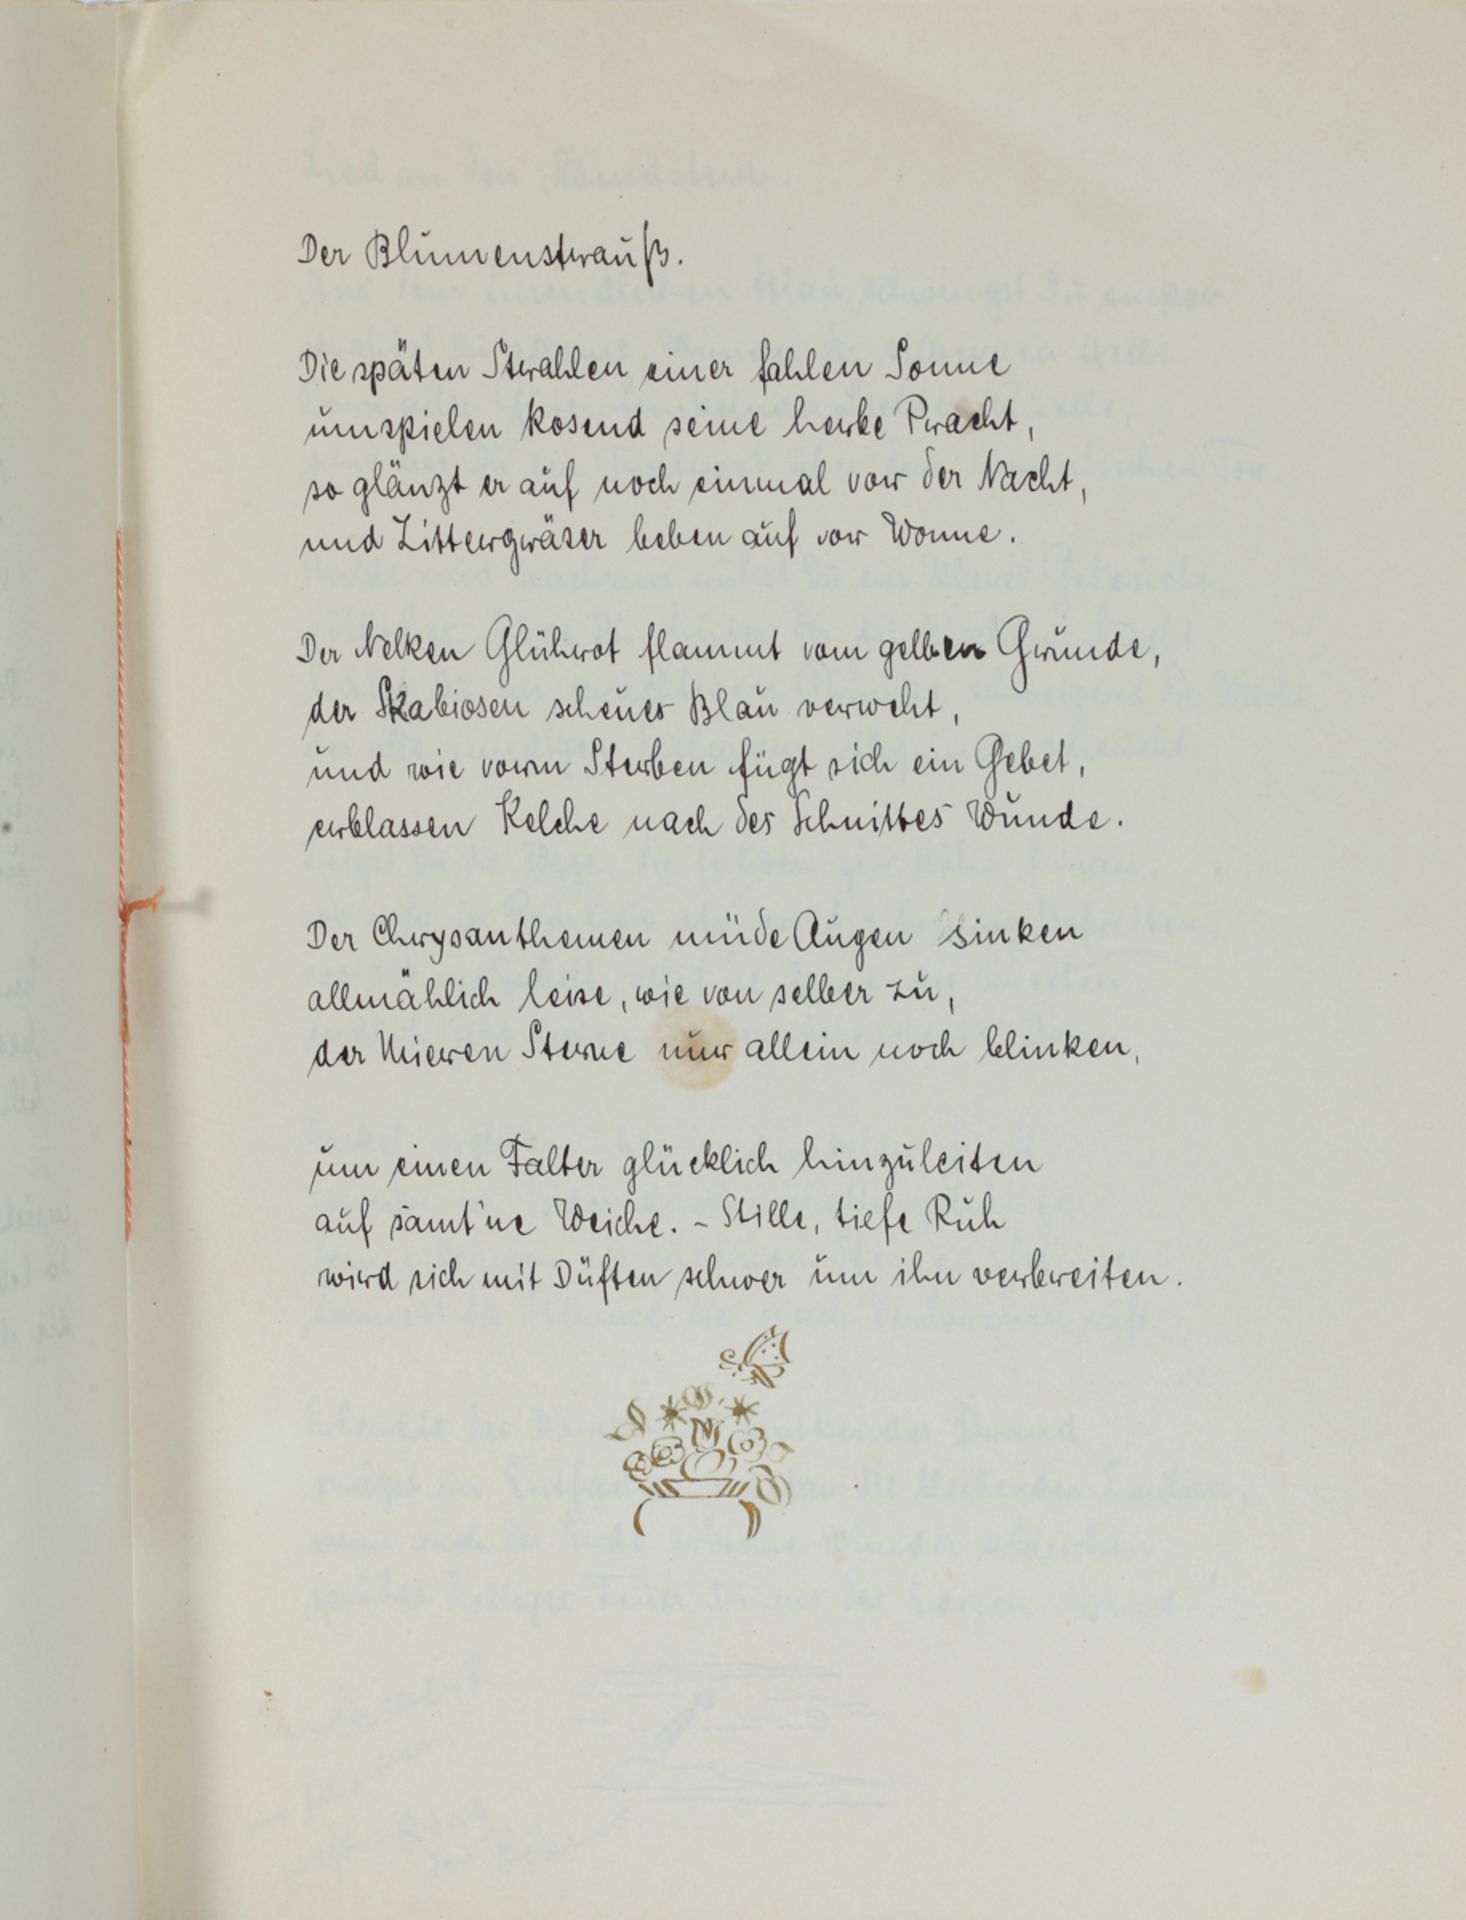 Der Blumenstrauß.
Die späten Strahlen einer fahlen Sonne
umspielen kosend seine herbe Pracht,
so glänzt er auf noch einmal vor der Nacht,
und Zittergräser beben auf vor Wonne.
Der Nelken Glührot flammt vom gelben Grunde,
der Skabiosen scheues Blau verweht,
und wie vorm Sterben fügt sich ein Gebet,
erblassen Kelche nach des Schnittes Wunde.
Der Chrysanthemen müde Augen sinken
allmählich leise, wie von selber zu,
der Mieren Sterne nur allein noch blinken,
um einen Falter glücklich hinzuleiten
auf samt'ne Weiche. - Stille, tiefe Ruh
wird sich mit Düften schwer um ihn verbreiten.